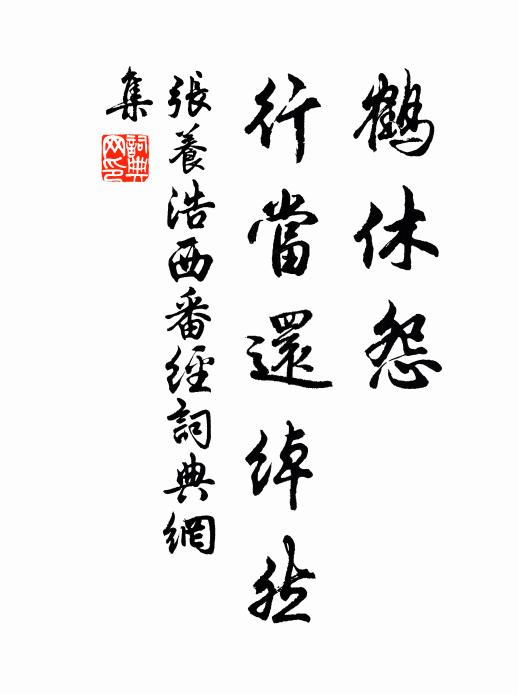 鶴休怨
行當還綽然
張養浩西番經詞典網
集
詞典
网印